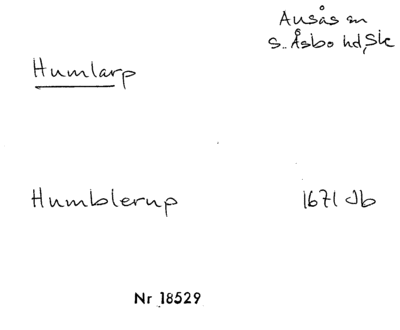 Ausås sn
S. Åsbo hd, Sk
Humlarp
Humblerup 1671 Jb
Nr 18529